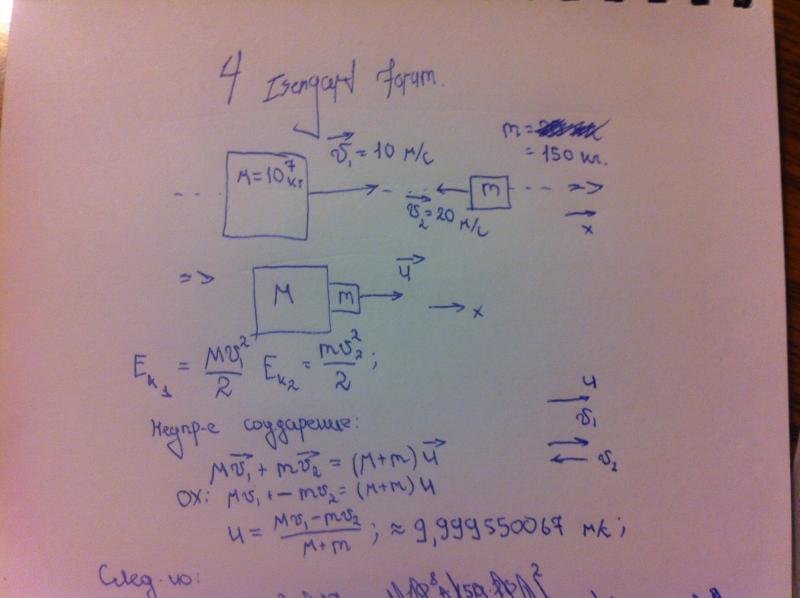 4 Isengard Forum.
m =
= 150 кг.
v₁ = 10 м/с
M = 10⁷ кг
m
v₂ = 20 м/с
x
=>
u
M
m
x
Eₖ₁ = Mv₁²/2 Eₖ₂ = mv₂²/2 ;
u
v₁
v₂
Неупр-е соударение:
Mv₁ + mv₂ = (M+m) u
OX: Mv₁ + − mv₂ = (M+m) u
u = (Mv₁ − mv₂)/(M+m) ; ≈ 9,999550067 м/с ;
След-но: